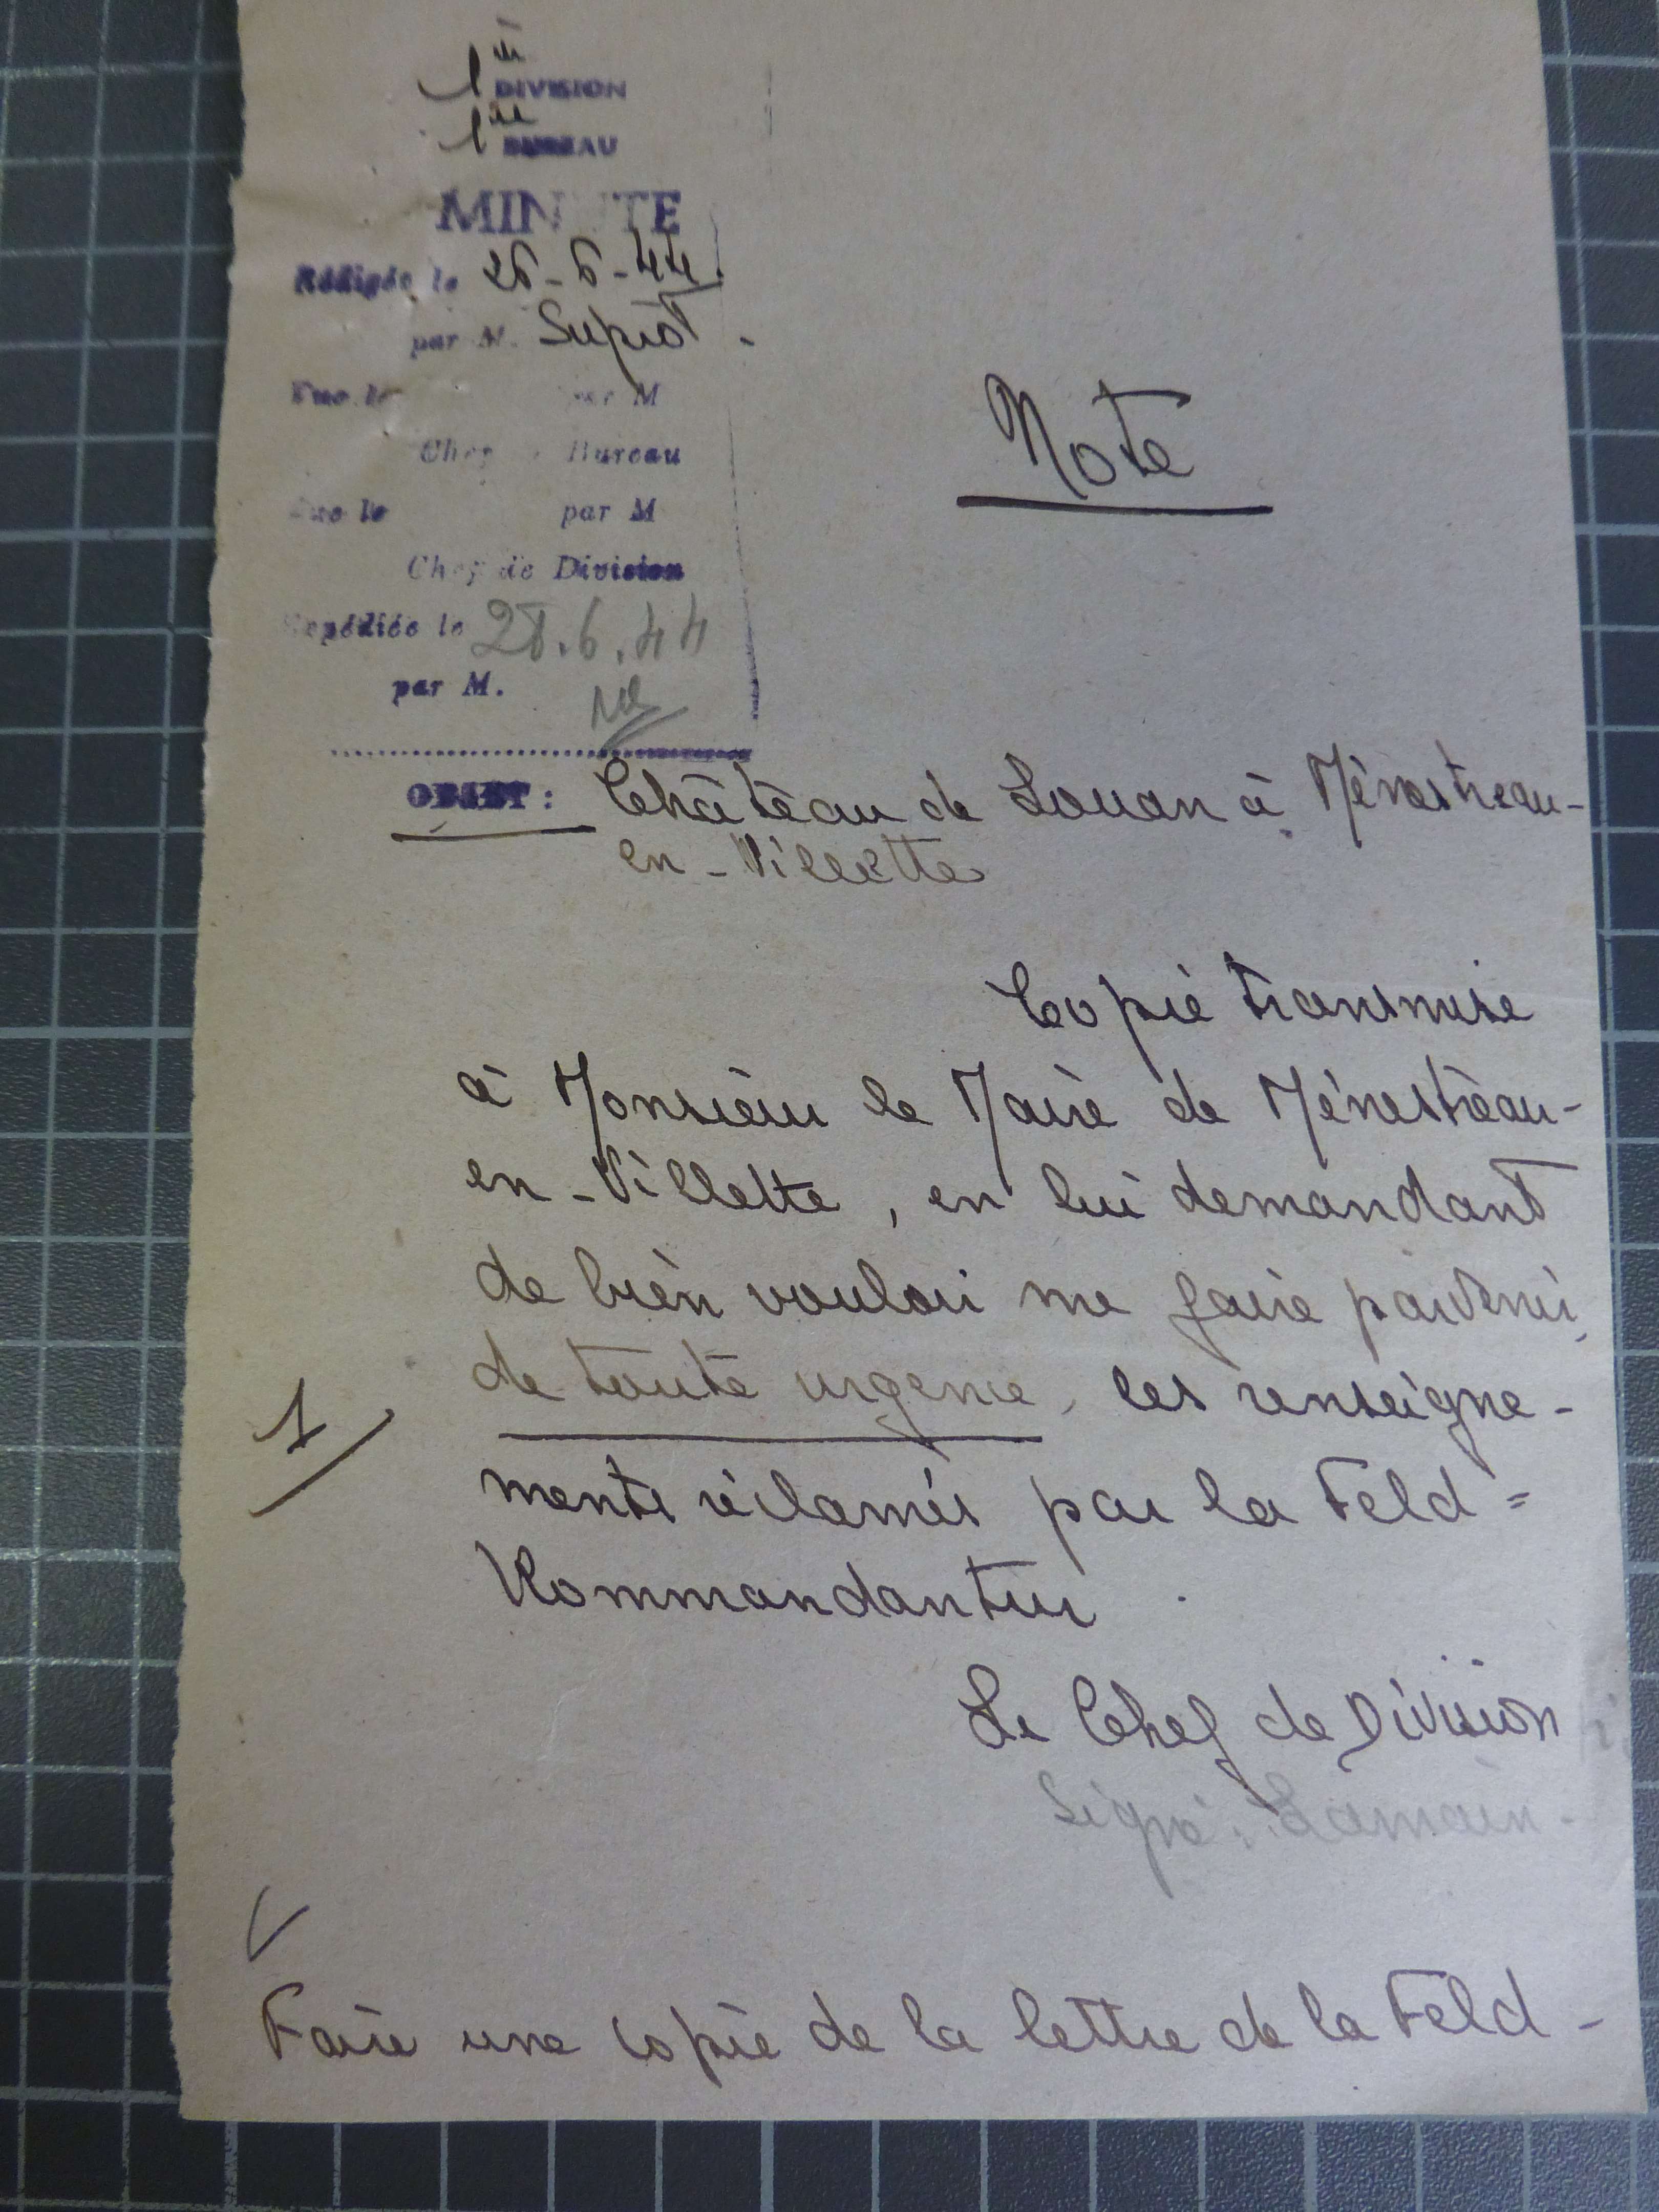 1ère DIVISION
1er BUREAU
MINUTE
Rédigée le 26-6-44.
par M. Supiot.
Vue le par M
Chef de Bureau
Vue le par M
Chef de Division
Expédiée le 28.6.44
par M.
Note
OBJET: Château de Louan à Ménestreau-
en-Villette
Copie transmise
à Monsieur le Maire de Ménestreau-
en-Villette, en lui demandant
de bien vouloir me faire parvenir,
de toute urgence, les renseigne-
1/
ments réclamés par la Feld=
Kommandantur.
Le Chef de Division
Signé: Lamain.
Faire une copie de la lettre de la Feld-